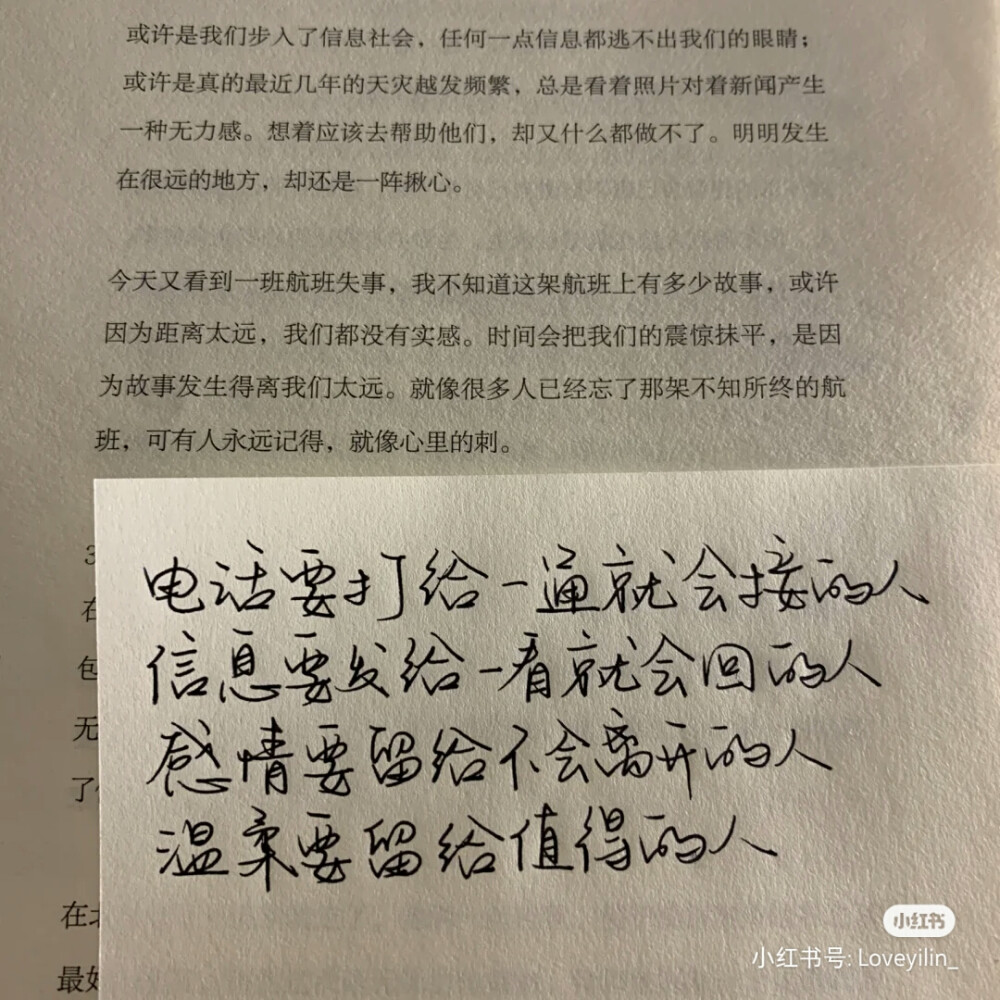 或许是我们步入了信息社会，任何一点信息都逃不出我们的眼睛；
或许是真的最近几年的天灾越发频繁，总是看着照片对着新闻产生
一种无力感。想着应该去帮助他们，却又什么都做不了。明明发生
在很远的地方，却还是一阵揪心。
今天又看到一班航班失事，我不知道这架航班上有多少故事，或许
因为距离太远，我们都没有实感。时间会把我们的震惊抹平，是因
为故事发生得离我们太远。就像很多人已经忘了那架不知所终的航
班，可有人永远记得，就像心里的刺。
3
在
包
无
了
在
最
电话要打给一通就会接的人
信息要发给一看就会回的人
感情要留给不会离开的人
温柔要留给值得的人
小红书
小红书号: Loveyilin_